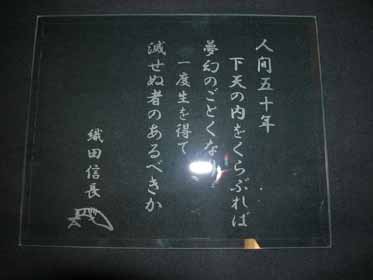 人間五十年
下天の内をくらぶれば
夢幻のごとくな
一度生を得て
滅せぬ者のあるべきか
織田信長